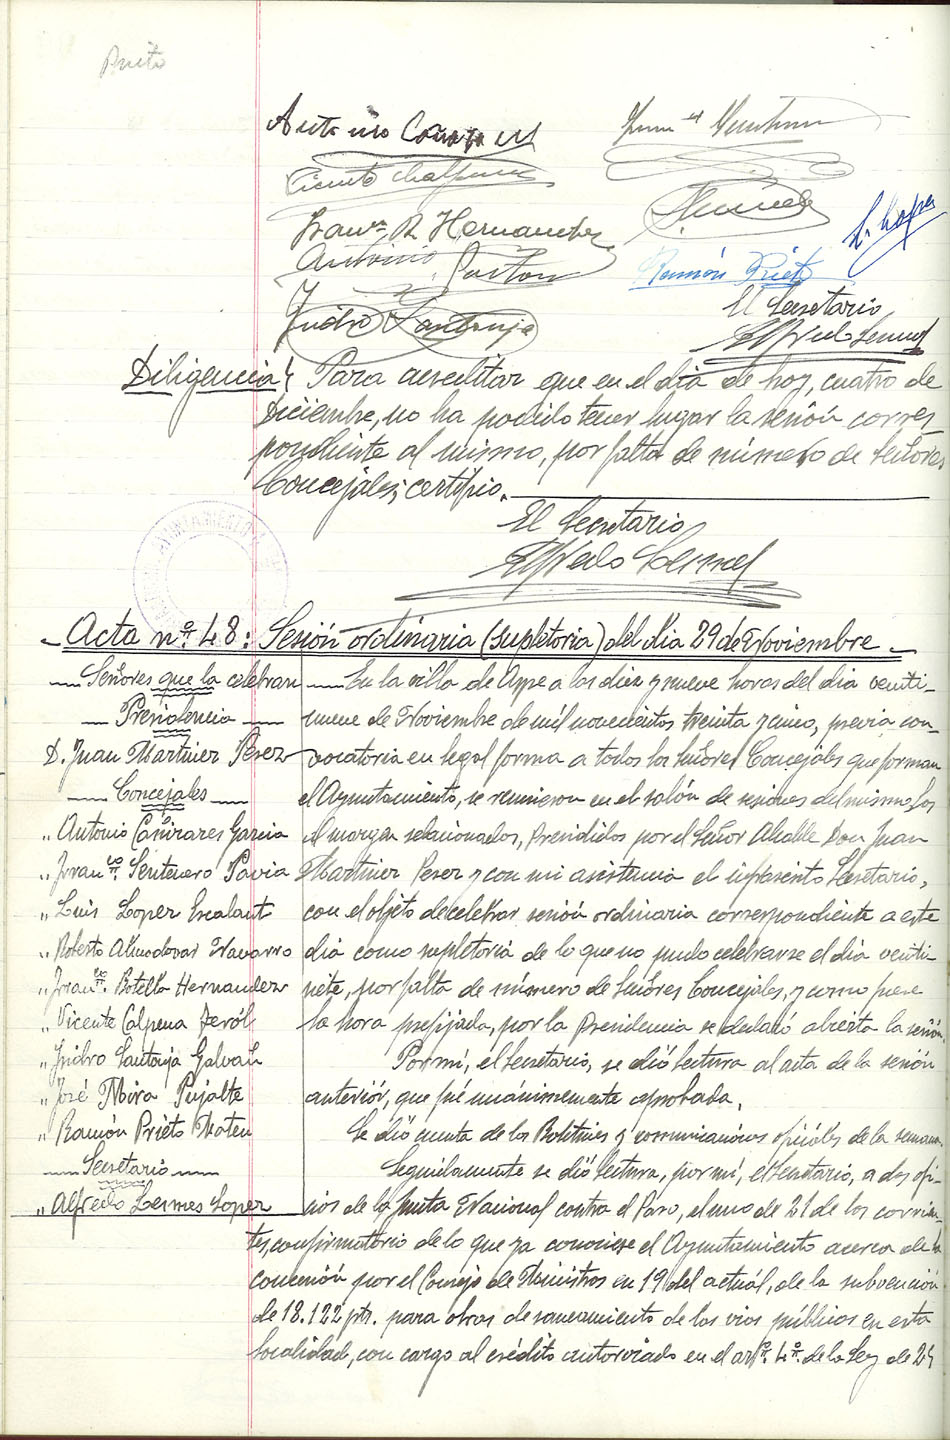 Prieto
Antonio Cañizares
Vicente Calpena
Franco. B. Hernandez
Antonio Pastor
Isidro Santonja
L. Lopez
Ramón Prieto
El Secretario
Alfredo Lesmes
Diligencia} Para acreditar que en el dia de hoy, cuatro de
Diciembre, no ha podido tener lugar la sesión corres
pondiente al mismo, por falta de número de Señores
Concejales; certifico.
El Secretario
Alfredo Lesmes
AYUNTAMIENTO
Acta nº. 48: Sesión ordinaria (supletoria) del dia 29 de Noviembre
Señores que la celebran
Presidencia
D. Juan Martinez Perez
Concejales
" Antonio Cañizares Garcia
" Franco. Sentenero Pavia
" Luis Lopez Escalant
" Roberto Almodovar Navarro
" Franco. Botella Hernandez
" Vicente Calpena Peról
" Isidro Santonja Galvañ
" José Mira Pujalte
" Ramón Prieto Mateu
Secretario
" Alfredo Lesmes Lopez
En la villa de Aspe a los diez y nueve horas del dia venti-
nueve de Noviembre de mil novecientos treinta y cinco, previa con-
vocatoria en legal forma a todos los señores Concejales que forman
el Ayuntamiento, se reunieron en el salón de sesiones del mismo, los
al margen relacionados, presididos por el Señor Alcalde Don Juan
Martinez Perez y con mi asistencia el infrascrito Secretario,
con el objeto de celebrar sesión ordinaria correspondiente a este
dia como supletoria de la que no pudo celebrarse el dia venti-
siete, por falta de número de Señores Concejales, y como fuese
la hora prefijada, por la Presidencia se declaró abierta la sesión.
Por mí, el Secretario, se dió lectura al acta de la sesión
anteriór, que fué unánimemente aprobada.
Se dió cuenta de los Boletines y comunicaciones oficiales de la semana.
Seguidamente se dió lectura, por mí, el Secretario, a dos ofi-
cios de la Junta Nacional contra el Paro, el uno de 21 de los corrien-
tes, confirmatorio de lo que ya conociese el Ayuntamiento acerca de la
concesión por el Consejo de Ministros en 19 del actuál, de la subvención
de 18.122 pts. para obras de saneamiento de las vias públicas en esta
localidad, con cargo al crédito autorizado en el artº. 4º. de la Ley de 25